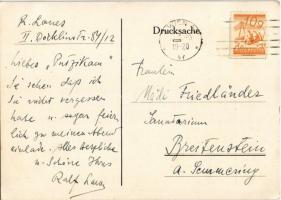 R. Lanes
II. Böcklinstr 59/12
Liebes "Putzikam"
Sie sehen daß ich
Sie nicht vergessen
habe u. sogar feier-
lich zu meinen Abend
einlade. Alles Herzliche
u. Schöne Ihres
Ralf
Drucksache.
WIEN
19·20
Fräulein
Mädi Friedländer
Sanatorium
Breitenstein
a. Semmering